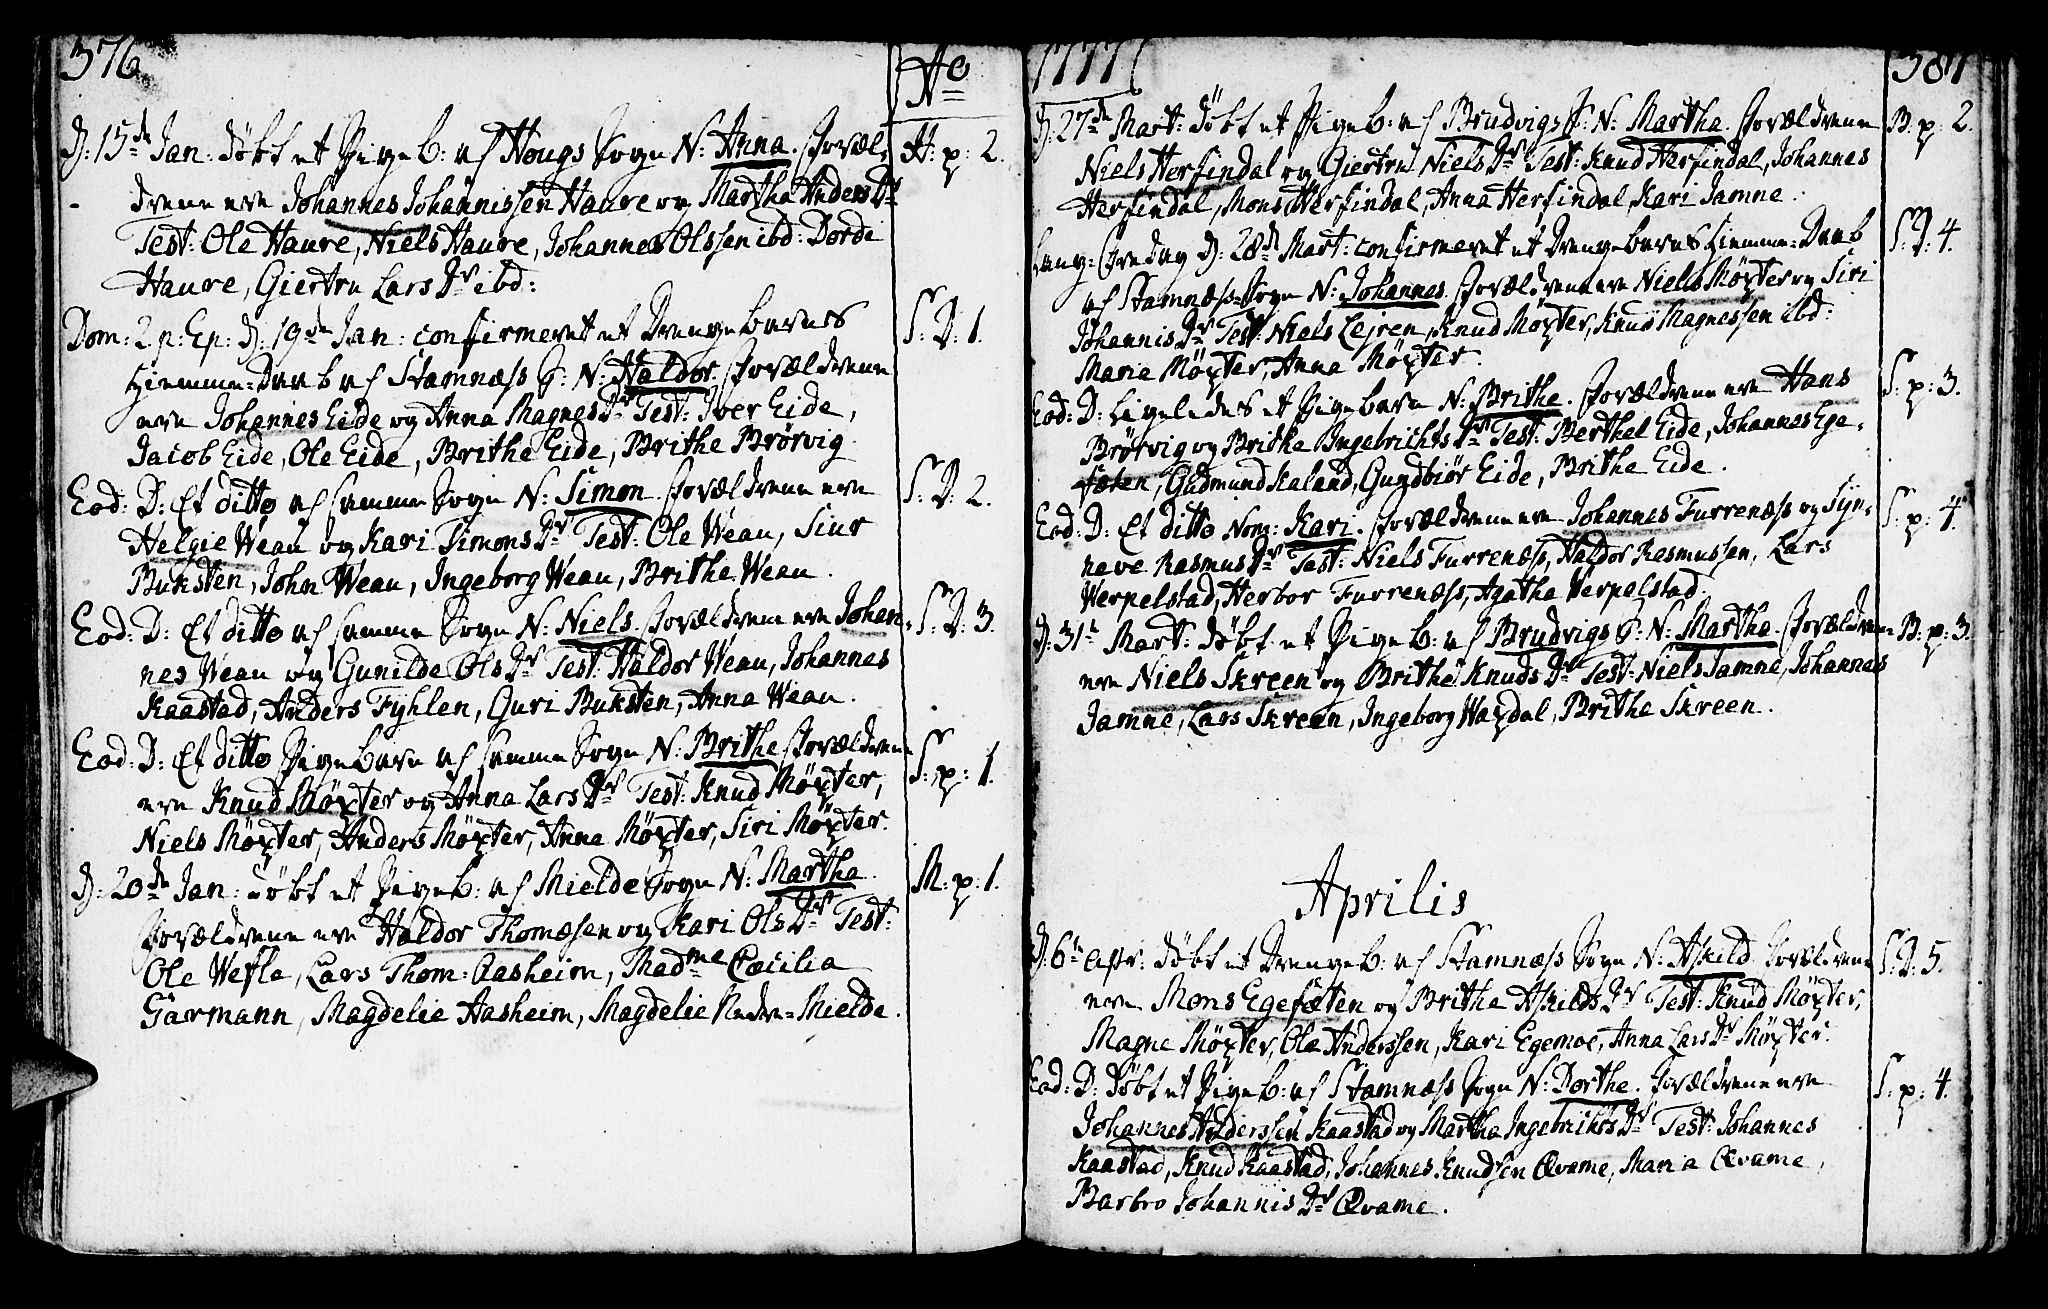 376 Ao
D: 15de Jan: døbt et Pigeb: af Hougs Sogn N: Anna. Foræl, H: p: 2.
drene ere Johannes Johannissen Haure og Martha Anders Dr
Test: Ole Haure, Niels Haure, Johannes Olssen ibd: Dorde
Haure, Giertru Lars Dr ibd:
Dom: 2 p: Ep: D: 19de Jan: confirmeret et Drengebarns S: D: 1.
Hiemme-Daab af Stamness S: N: Haldor. Forældrene
ere Johannes Eide og Anna Magnes Dr Test: Iver Eide,
Jacob Eide, Ole Eide, Brithe Eide, Brithe Brörvig
Eod: D: Et ditto af samme Sogn N: Simon. Forældrene ere S: D: 2.
Helgie Weau og Kari Simons Dr Test: Ole Weau, Siur
Buksten, John Weau, Ingeborg Weau, Brithe Weau.
Eod: D: Et ditto af samme Sogn N: Niels. Forældrene ere Johan, S: D: 3.
nes Weau og Gunilde Ols Dr Test: Haldor Weau, Johannes
Kaastad, Anders Fyhlen, Guri Buksten, Anna Weau.
Eod: D: Et ditto Pigebarn af samme Sogn N: Brithe. Forældrene S: p: 1.
ere Knud Möxter og Anna Lars Dr Test: Knud Möxter,
Niels Möxter, Anders Möxter, Anna Möxter, Siri Möxter.
D: 20de Jan: døbt et Pigeb: af Mielde Sogn N: Martha. M: p: 1.
Forældrene ere Haldor Thomæsen og Kari Ols Dr Test:
Ole Wefle, Lars Thom: Aasheim, Madme Cæcilia
Garmann, Magdelie Aasheim, Magdelie Neder-Mielde.
1777 387
D: 27de Mart: døbt et Pigeb: af Brudvigs S: N: Martha. Forældrene B: p: 2.
Niels Herfindal og Giertru Niels Dr Test: Knud Herfindal, Johannes
Herfindal, Mons Herfindal, Anna Herfindal, Kari Jamne.
Lang-Fredag D: 28de Mart: confirmeret et Drengebarns Hiemme-Daab S: D: 4.
af Stamness-Sogn N: Johannes. Forældrene ere Niels Möxter og Siri
Johannis Dr Test: Niels Lejren, Knud Möxter, Knud Magnessen ibd:
Maria Möxter, Anna Möxter.
Eod: D: Ligeledes et Pigebarn N: Brithe. Forældrene ere Hans S: p: 3.
Brörvig og Brithe Ingebrichts Dr Test: Berthel Eide, Johannes Ege,
sæten, Gudmund Kaland, Gundbiör Eide, Brithe Eide.
Eod: D: Et ditto Nom: Kari. Forældrene ere Johannes Furreness og Syn, S: p: 4.
neve Rasmus Dr Test: Niels Furreness, Haldor Rasmussen, Lars
Werpelstad, Herbor Furreness, Agatha Werpelstad.
D: 31t Mart: døbt et Pigeb: af Brudvigs S: N: Martha. Forældrene B: p: 3.
ere Niels Skreen og Brithe Knuds Dr Test: Niels Jamne, Johannes
Jamne, Lars Skreen, Ingeborg Waxdal, Brithe Skreen.
Aprilis
D: 6te Apr: døbt et Drengeb: af Stamness Sogn N: Askild. Forældrene S: D: 5.
ere Mons Egesæten og Brithe Askilds Dr Test: Knud Möxter,
Magne Möxter, Ole Anderssen, Kari Egemoe, Anna Lars Dr Möxter.
Eod: D: døbt et Pigeb: af Stamness Sogn N: Dorthe. Forældrene ere S: p: 4.
Johannes Anderssen Kaastad og Martha Ingebrichts Dr Test: Johannes
Kaastad, Knud Kaastad, Johannes Knudsen Qvame, Maria Qvame,
Barbro Johannis Dr Qvame.